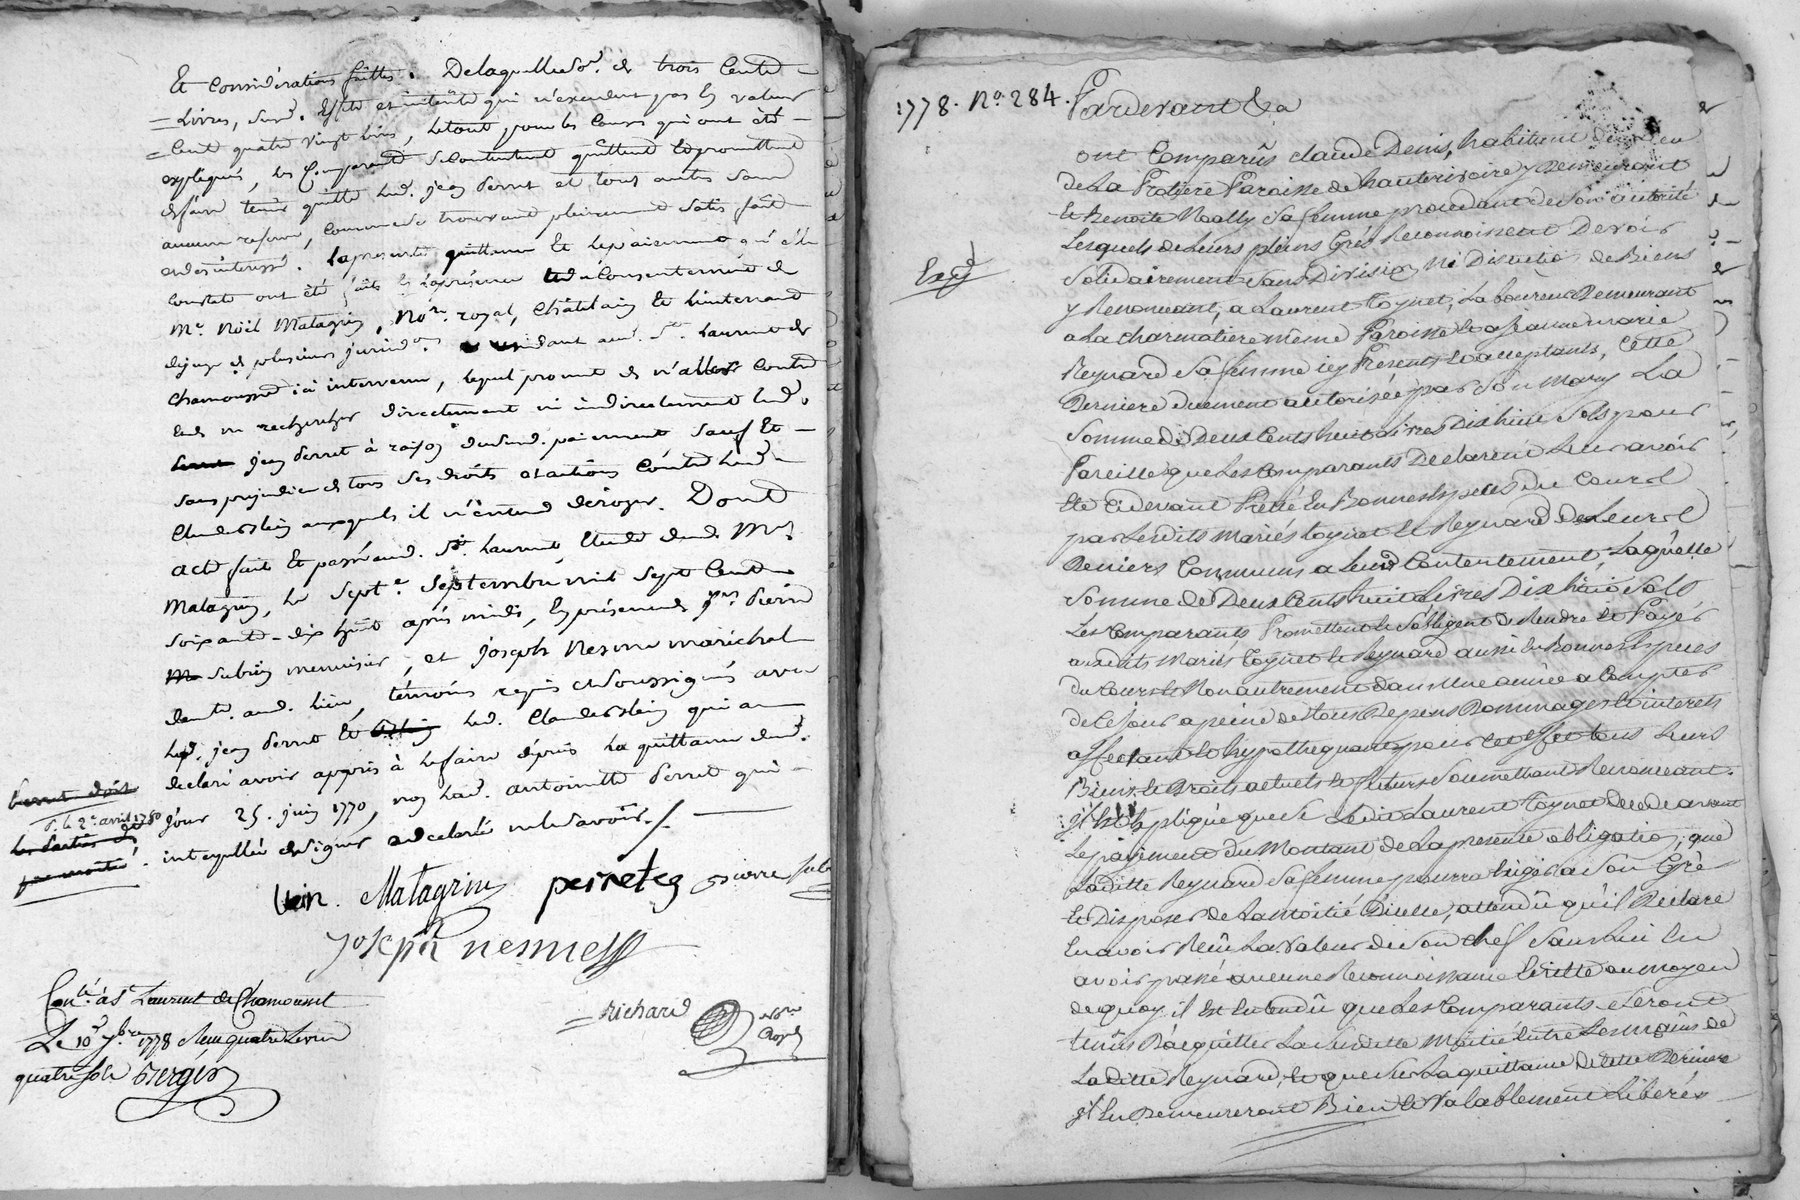 Et Considérations faittes. De laquelle So.e de trois Cent
Livres, Susd. Et qui n'excedent pas la valeur
Cent quatre vingt livres, le tout pour les Causes qui ont été
expliqués, les Comparants se contentent quittent et promettent
de faire tenir quitte led. jean Perret et tous autres sans
aucune reserve, comme se trouvant pleinement satisfait
et desinteressé. La presente quittance Et le paiement qui
constate ont été faits en la présence et du Consentement de
Me. Noël Matagrin, No.re royal, Châtelain Et Lieutenant
de juge de plusieurs jurisd.ons residant aud. St. Laurent de
Chamousset ici intervenu, lequel promet de n'aller Contre
ni rechercher directement ni indirectement led.
jean Perret à raison dususd. paiement Sauf Et
sans prejudice de tous ses droits et actions Contre lad.
auxquels il n'entend deroger. Dont
acte fait Et passé aud. St. Laurent, Etude dud. Me.
Matagrin, le Sept.e Septembre mil Sept Cent
soixante-dix huit après midi, En présence de Pierre
Subrin menuisier, et Joseph Nesme maréchal
dem.t aud. lieu, témoins requis et soussignés avec
led. jean Perret Et led. Claude qui a
declaré avoir appris à le faire depuis la quittance dud.
jour 25. juin 1770, non lad. antoinette Perret qui
interpellée de signer a declaré ne le savoir./.
Perret doit
P. le 2e. avril 1780
Matagrin perret Pierre Sub
Joseph nesme
richard
No.re Royal
Con.lé à St Laurent de Chamousset
Le 10e 7bre 1778 Reçu quatre Livres
quatre sols Bergér
1778. No. 284. Pardevant &a
ont Comparûs claude Denis, habitant du lieu
de La Protiere Paroisse de hauterivoire y Demeurant
et Benoite Noally Sa femme procedant de Son autorité
Lesquels de Leurs pleins Grés Reconnoissent Devoir
Exp.d
Solidairement Sans Division Ni Discution de Biens
y Renonceant, a Laurent Coynet, Laboureur Demeurant
a La Charmatiere même Paroisse et a jeanne marie
Reynard Sa femme icy Presents et acceptants, Cette
Derniere duement autorisée par Son Mary La
Somme de Deux Cents huit Livres Dix huit Sols pour
Pareille que Les Comparants Declarent Leur avoir
Eté Cidevant Prété En Bonnes Especes du Cours
par Lesdits Mariés Coynet et Reynard de Leurs
Deniers Communs a Leur Contentement, Laquelle
Somme de Deux Cents huit Livres Dix huit Sols
Les Comparants Promettent et S'obligent de Rendre et Payer
auxdits Mariés Coynet et Reynard aussi En Bonnes Especes
du Cours et Non autrement dans Une année a Compter
de Ce jour a peine de tous Depens Dommages et interets
affectant et hypothequant pour Cet effet tous Leurs
Biens et Droits actuels et futurs Soumettant Renonceant.
jl Est Expliqué que Si Ledit Laurent Coynet decede avant
Le payement du Montant de La presente obligation, que
Laditte Reynard Sa femme pourra Exiger a Son Gré
Et Disposer de La Moitié D'icelle, attendû qu'il Declare
En avoir Reçû La Valeur de Son Chef Sans Lui En
avoir passé aucune Reconnoissance Ecritte au moyen
de quoy il Est Entendû que Les Comparants Seront
tenûs D'acquitter La Susditte Moitié Entre Les mains de
Laditte Reynard, et que Sur La quittance de Cette Derniere
jls En Demeureront Bien et Valablement Libérés